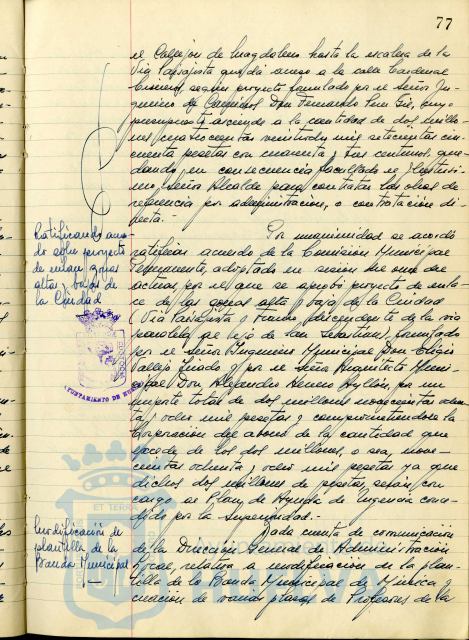 77
el Callejón de Magdalena hasta la escalera de la
Via Paisajista que da acceso a la calle Cardenal
Cisneros, según proyecto formulado por el Señor In-
geniero de Caminos Don Fernando
presupuesto asciende a la cantidad de dos millo-
nes cuatrocientas veintiocho mil setecientas cin-
cuenta pesetas con cuarenta y tres centimos, que-
dando, en consecuencia facultado el Ilustrísi-
mo señor Alcalde para contratar las obras de
referencia por administración, o contratación di-
recta.-
Ratificando acuer-
do sobre proyecto
de enlace zonas
altas y bajas de
la Ciudad
Por unanimidad se acordó
ratificar acuerdo de la Comisión Municipal
Permanente, adoptado en sesión de once del
actual por el que se aprobó proyecto de enla-
ce de las zonas alta y baja de la Ciudad
(Via Paisajista y Tramo descendente de la via
paralela al eje de San Sebastian), formulado
por el Señor Ingeniero Municipal Don Eligio
Vallejo y por el señor Arquitecto Muni-
cipal Don Alejandro Herrero Ayllón, por un
importe total de dos millones novecientas ochen-
ta y ocho mil pesetas y comprometiendose la
Corporación al abono de la cantidad que
exceda de los dos millones, o sea, nove-
cientas ochenta y ocho mil pesetas ya que
dichos dos millones de pesetas serán con
cargo al Plan de Ayuda de Urgencia conce-
dido por la Superioridad.-
AYUNTAMIENTO DE
Modificación de
plantilla de la
Banda Municipal
Dada cuenta de comunicación
de la Dirección General de Administración
Local, relativa a modificación de la plan-
tilla de la Banda Municipal de Música y
creación de varias plazas de Profesores de la
ET TERRA